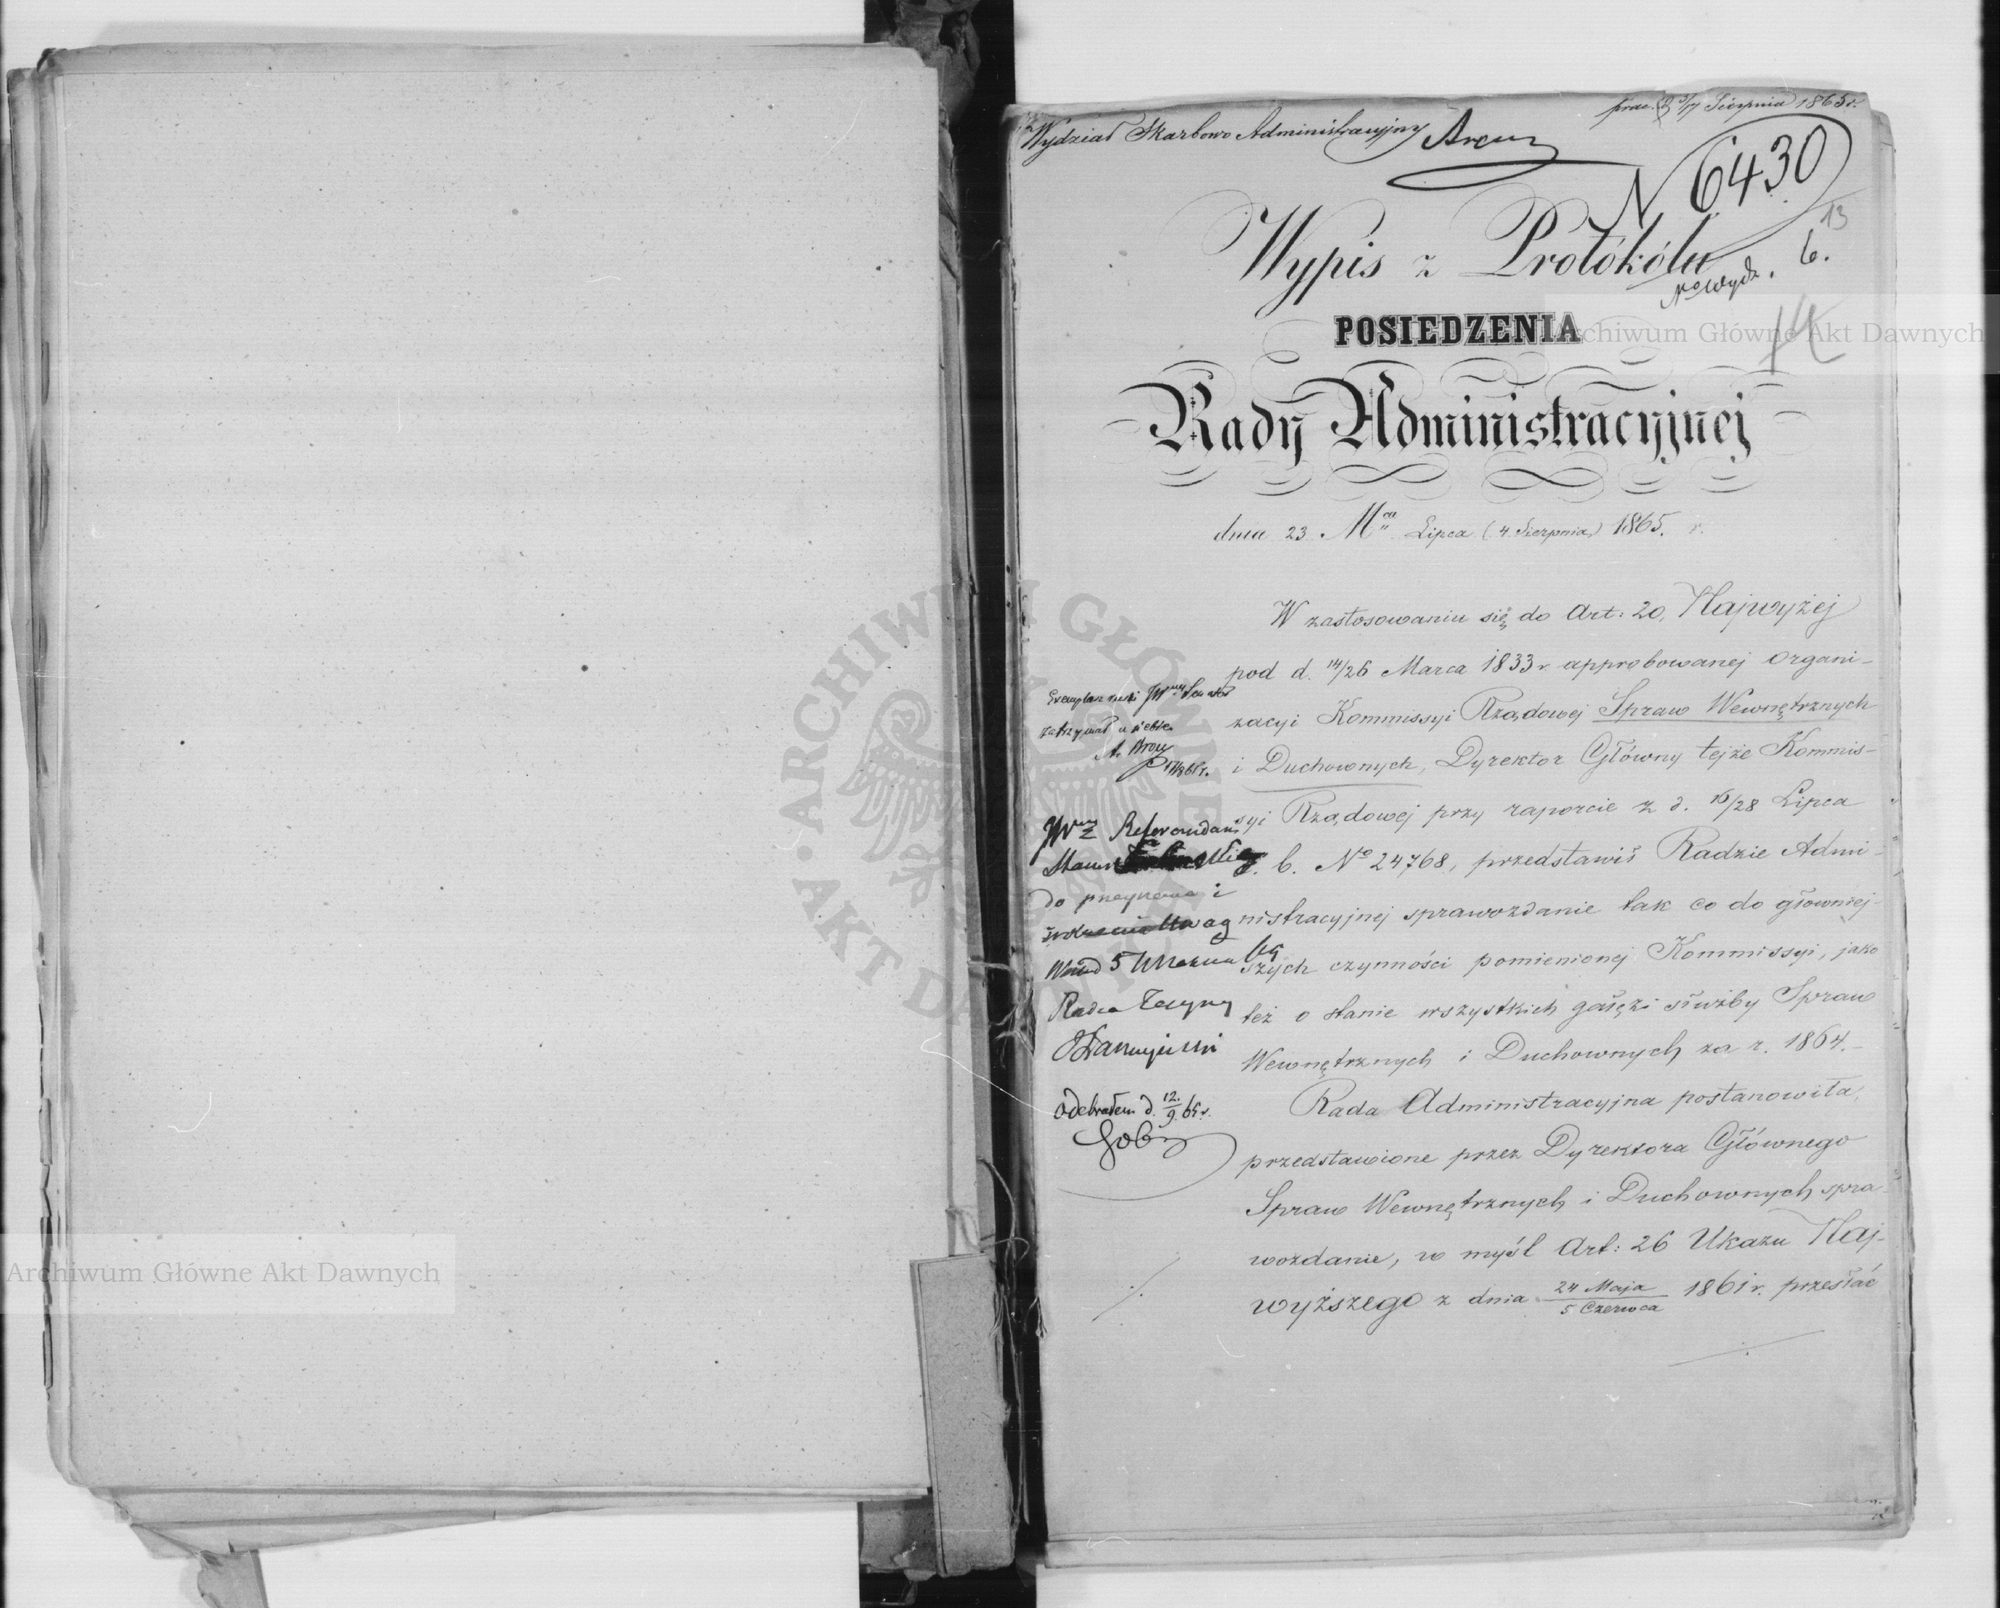 prae. d. 5/17 Sierpnia 1865 r.
Wydział Skarbowo Administracyjny
N 6430
13
Wypis z Protókółu
No Wydz. 6.
POSIEDZENIA
14
Rady Administracyjnej
dnia 23 Mca Lipca (4 Sierpnia) 1865. r.
W zastosowaniu się do Art: 20, Najwyżej
pod d. 14/26 Marca 1833 r. approbowanej Organi-
zacyi Kommissyi Rządowej Spraw Wewnętrznych
i Duchownych, Dyrektor Główny tejże Kommis-
syi Rządowej przy raporcie z d. 16/28 Lipca
r. b. No 24768, przedstawił Radzie Admi-
nistracyjnej sprawozdanie tak co do główniej-
szych czynności pomienionej Kommissyi, jako
też o stanie wszystkich gałęzi służby Spraw
Wewnętrznych i Duchownych za r. 1864.-
Rada Administracyjna postanowiła,
przedstawione przez Dyrektora Głównego
Spraw Wewnętrznych i Duchownych spra-
wozdanie, w myśl Art: 26 Ukazu Naj-
wyższego z dnia 24 Maja / 5 Czerwca 1861 r. przesłać
Exemplarz ruski JWny Senator
zatrzymał u siebie
17/8 65 r.
JWny Referendarz
do przejrzenia i
uwag
5 Września 65
Radca Tajny
Odebrałem d. 12/9 65 r.
Archiwum Główne Akt Dawnych
Archiwum Główne Akt Dawnych
ARCHIWUM GŁÓWNE AKT DAWNYCH